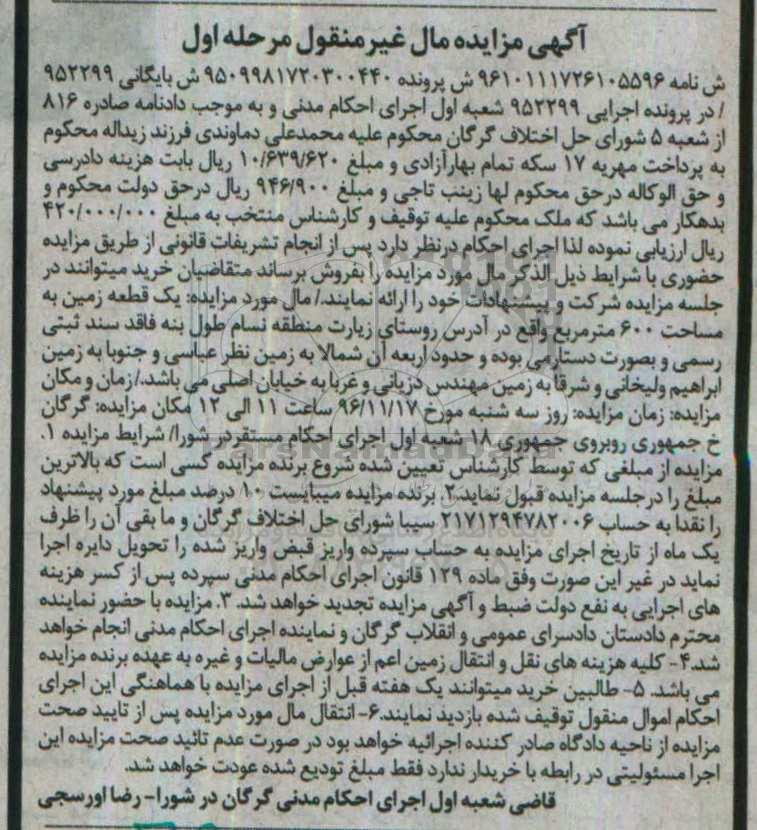 آگهی مزایده مال غیرمنقول مرحله اول
ش نامه ۹۶۱۰۱۱۱۷۲۶۱۰۵۵۹۶ ش پرونده ۹۵۰۹۹۸۱۷۲۰۳۰۰۴۴۰ ش بایگانی ۹۵۲۲۹۹
/ در پرونده اجرایی ۹۵۲۲۹۹ شعبه اول اجرای احکام مدنی و به موجب دادنامه صادره ۸۱۶
از شعبه ۵ شورای حل اختلاف گرگان محکوم علیه محمدعلی دماوندی فرزند زیداله محکوم
به پرداخت مهریه ۱۷ سکه تمام بهارآزادی و مبلغ ۱۰/۶۳۹/۶۲۰ ریال بابت هزینه دادرسی
و حق الوکاله درحق محکوم لها زینب تاجی و مبلغ ۹۴۶/۹۰۰ ریال درحق دولت محکوم و
بدهکار می باشد که ملک محکوم علیه توقیف و کارشناس منتخب به مبلغ ۴۲۰/۰۰۰/۰۰۰
ریال ارزیابی نموده لذا اجرای احکام درنظر دارد پس از انجام تشریفات قانونی از طریق مزایده
حضوری با شرایط ذیل الذکر مال مورد مزایده را بفروش برساند متقاضیان خرید میتوانند در
جلسه مزایده شرکت و پیشنهادات خود را ارائه نمایند./ مال مورد مزایده: یک قطعه زمین به
مساحت ۶۰۰ مترمربع واقع در آدرس روستای زیارت منطقه نسام طول بنه فاقد سند ثبتی
رسمی و بصورت دستارمی بوده و حدود اربعه آن شمالا به زمین نظر عباسی و جنوبا به زمین
ابراهیم ولیخانی و شرقا به زمین مهندس دزیانی و غربا به خیابان اصلی می باشد./ زمان و مکان
مزایده: زمان مزایده: روز سه شنبه مورخ ۹۶/۱۱/۱۷ ساعت ۱۱ الی ۱۲ مکان مزایده: گرگان
خ جمهوری روبروی جمهوری ۱۸ شعبه اول اجرای احکام مستقردر شورا/ شرایط مزایده ۱.
مزایده از مبلغی که توسط کارشناس تعیین شده شروع برنده مزایده کسی است که بالاترین
مبلغ را درجلسه مزایده قبول نماید.۲. برنده مزایده میبایست ۱۰ درصد مبلغ مورد پیشنهاد
را نقدا به حساب ۲۱۷۱۲۹۴۷۸۲۰۰۶ سیبا شورای حل اختلاف گرگان و ما بقی آن را ظرف
یک ماه از تاریخ اجرای مزایده به حساب سپرده واریز قبض واریز شده را تحویل دایره اجرا
نماید در غیر این صورت وفق ماده ۱۲۹ قانون اجرای احکام مدنی سپرده پس از کسر هزینه
های اجرایی به نفع دولت ضبط و آگهی مزایده تجدید خواهد شد. ۳. مزایده با حضور نماینده
محترم دادستان دادسرای عمومی و انقلاب گرگان و نماینده اجرای احکام مدنی انجام خواهد
شد.۴- کلیه هزینه های نقل و انتقال زمین اعم از عوارض مالیات و غیره به عهده برنده مزایده
می باشد. ۵- طالبین خرید میتوانند یک هفته قبل از اجرای مزایده با هماهنگی این اجرای
احکام اموال منقول توقیف شده بازدید نمایند.۶- انتقال مال مورد مزایده پس از تایید صحت
مزایده از ناحیه دادگاه صادر کننده اجرائیه خواهد بود در صورت عدم تائید صحت مزایده این
اجرا مسئولیتی در رابطه با خریدار ندارد فقط مبلغ تودیع شده عودت خواهد شد.
قاضی شعبه اول اجرای احکام مدنی گرگان در شورا- رضا اورسجی
ParsNamadData